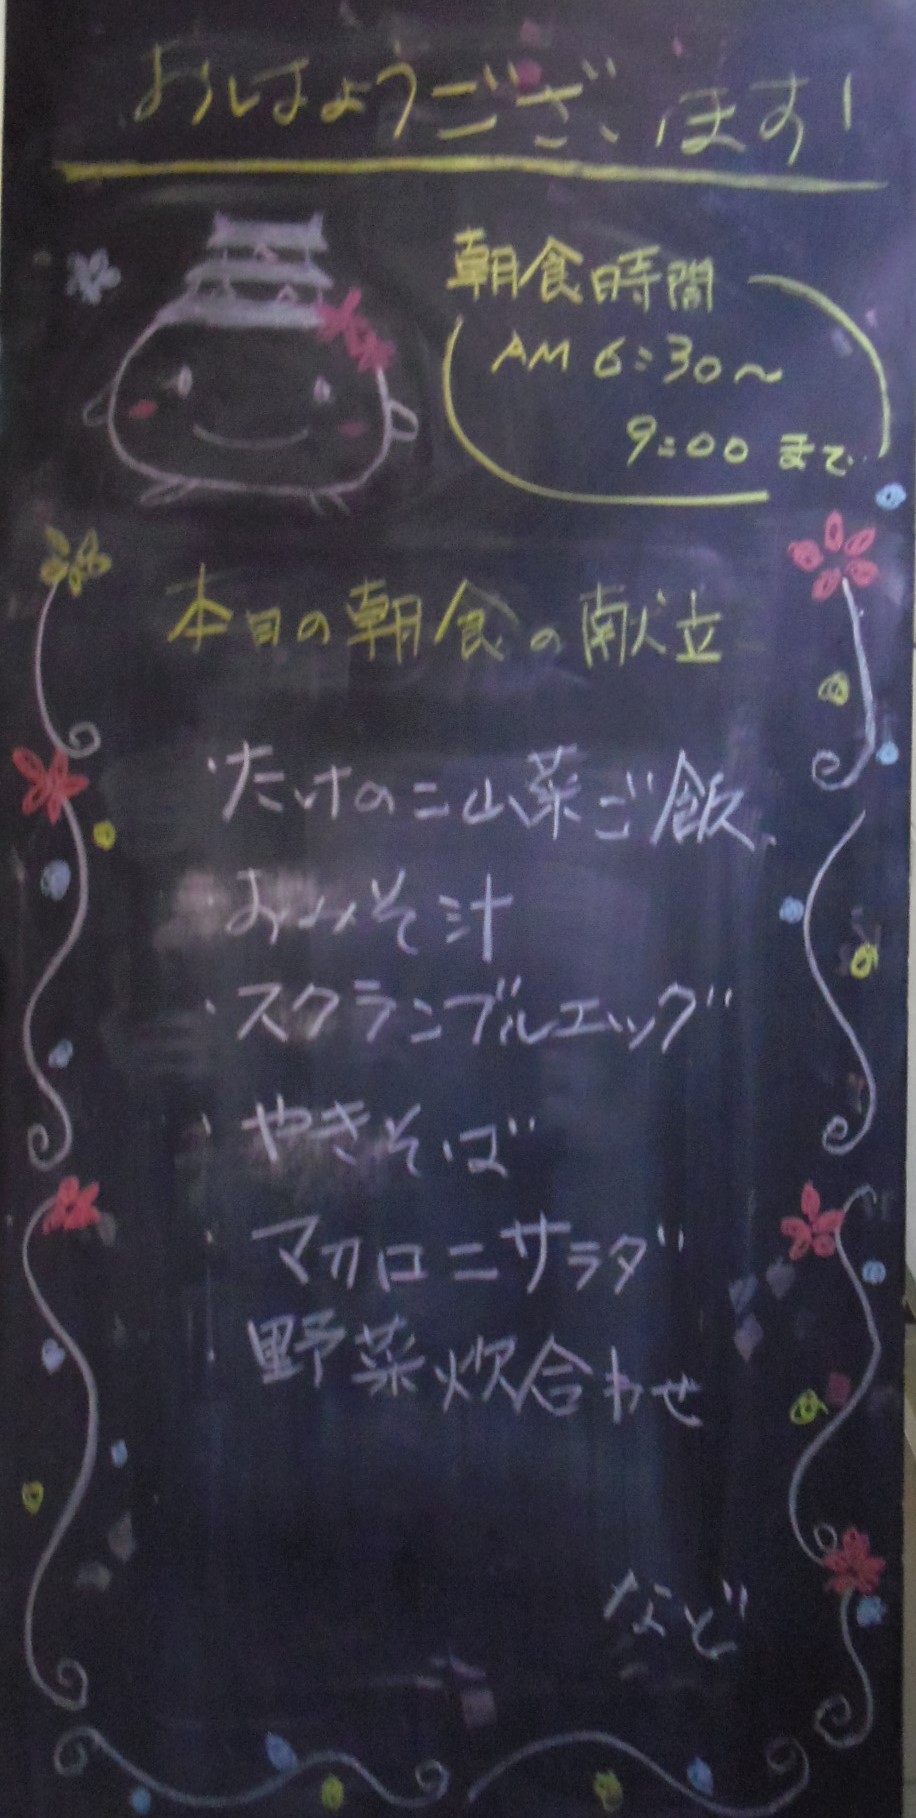 おはようございます!
朝食時間
AM 6:30〜
9:00 まで
本日の朝食の献立
・たけのこ山菜ご飯
・おみそ汁
・スクランブルエッグ
・やきそば
・マカロニサラダ
・野菜炊合わせ
など